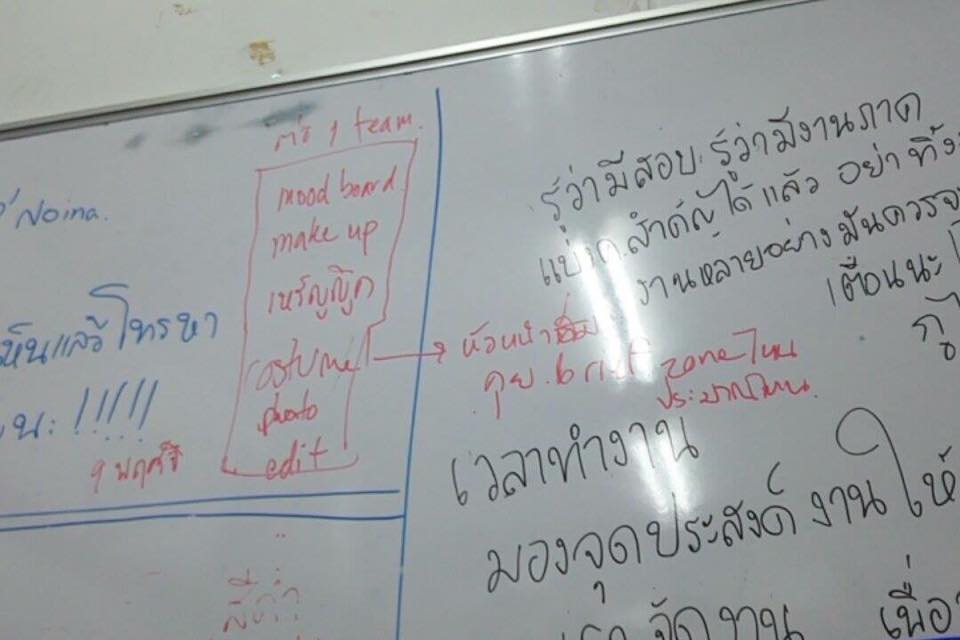 Noina.
เห็นแล้วโทรหา
นะ !!!!!
9 พฤศจิ
1 team.
mood board
make up
costume
photo
edit
หัวหน้าทีม
คุย. brief zone ไหน
ประมาณไหน.
รู้ว่ามีสอบ รู้ว่ามีงานภาค
สำคัญได้แล้ว อย่าทิ้ง
งานหลายอย่างมันควรจะ
เตือนนะ
เวลาทำงาน
มองจุดประสงค์งานให้
จัดงาน เพื่อ
สีดำ